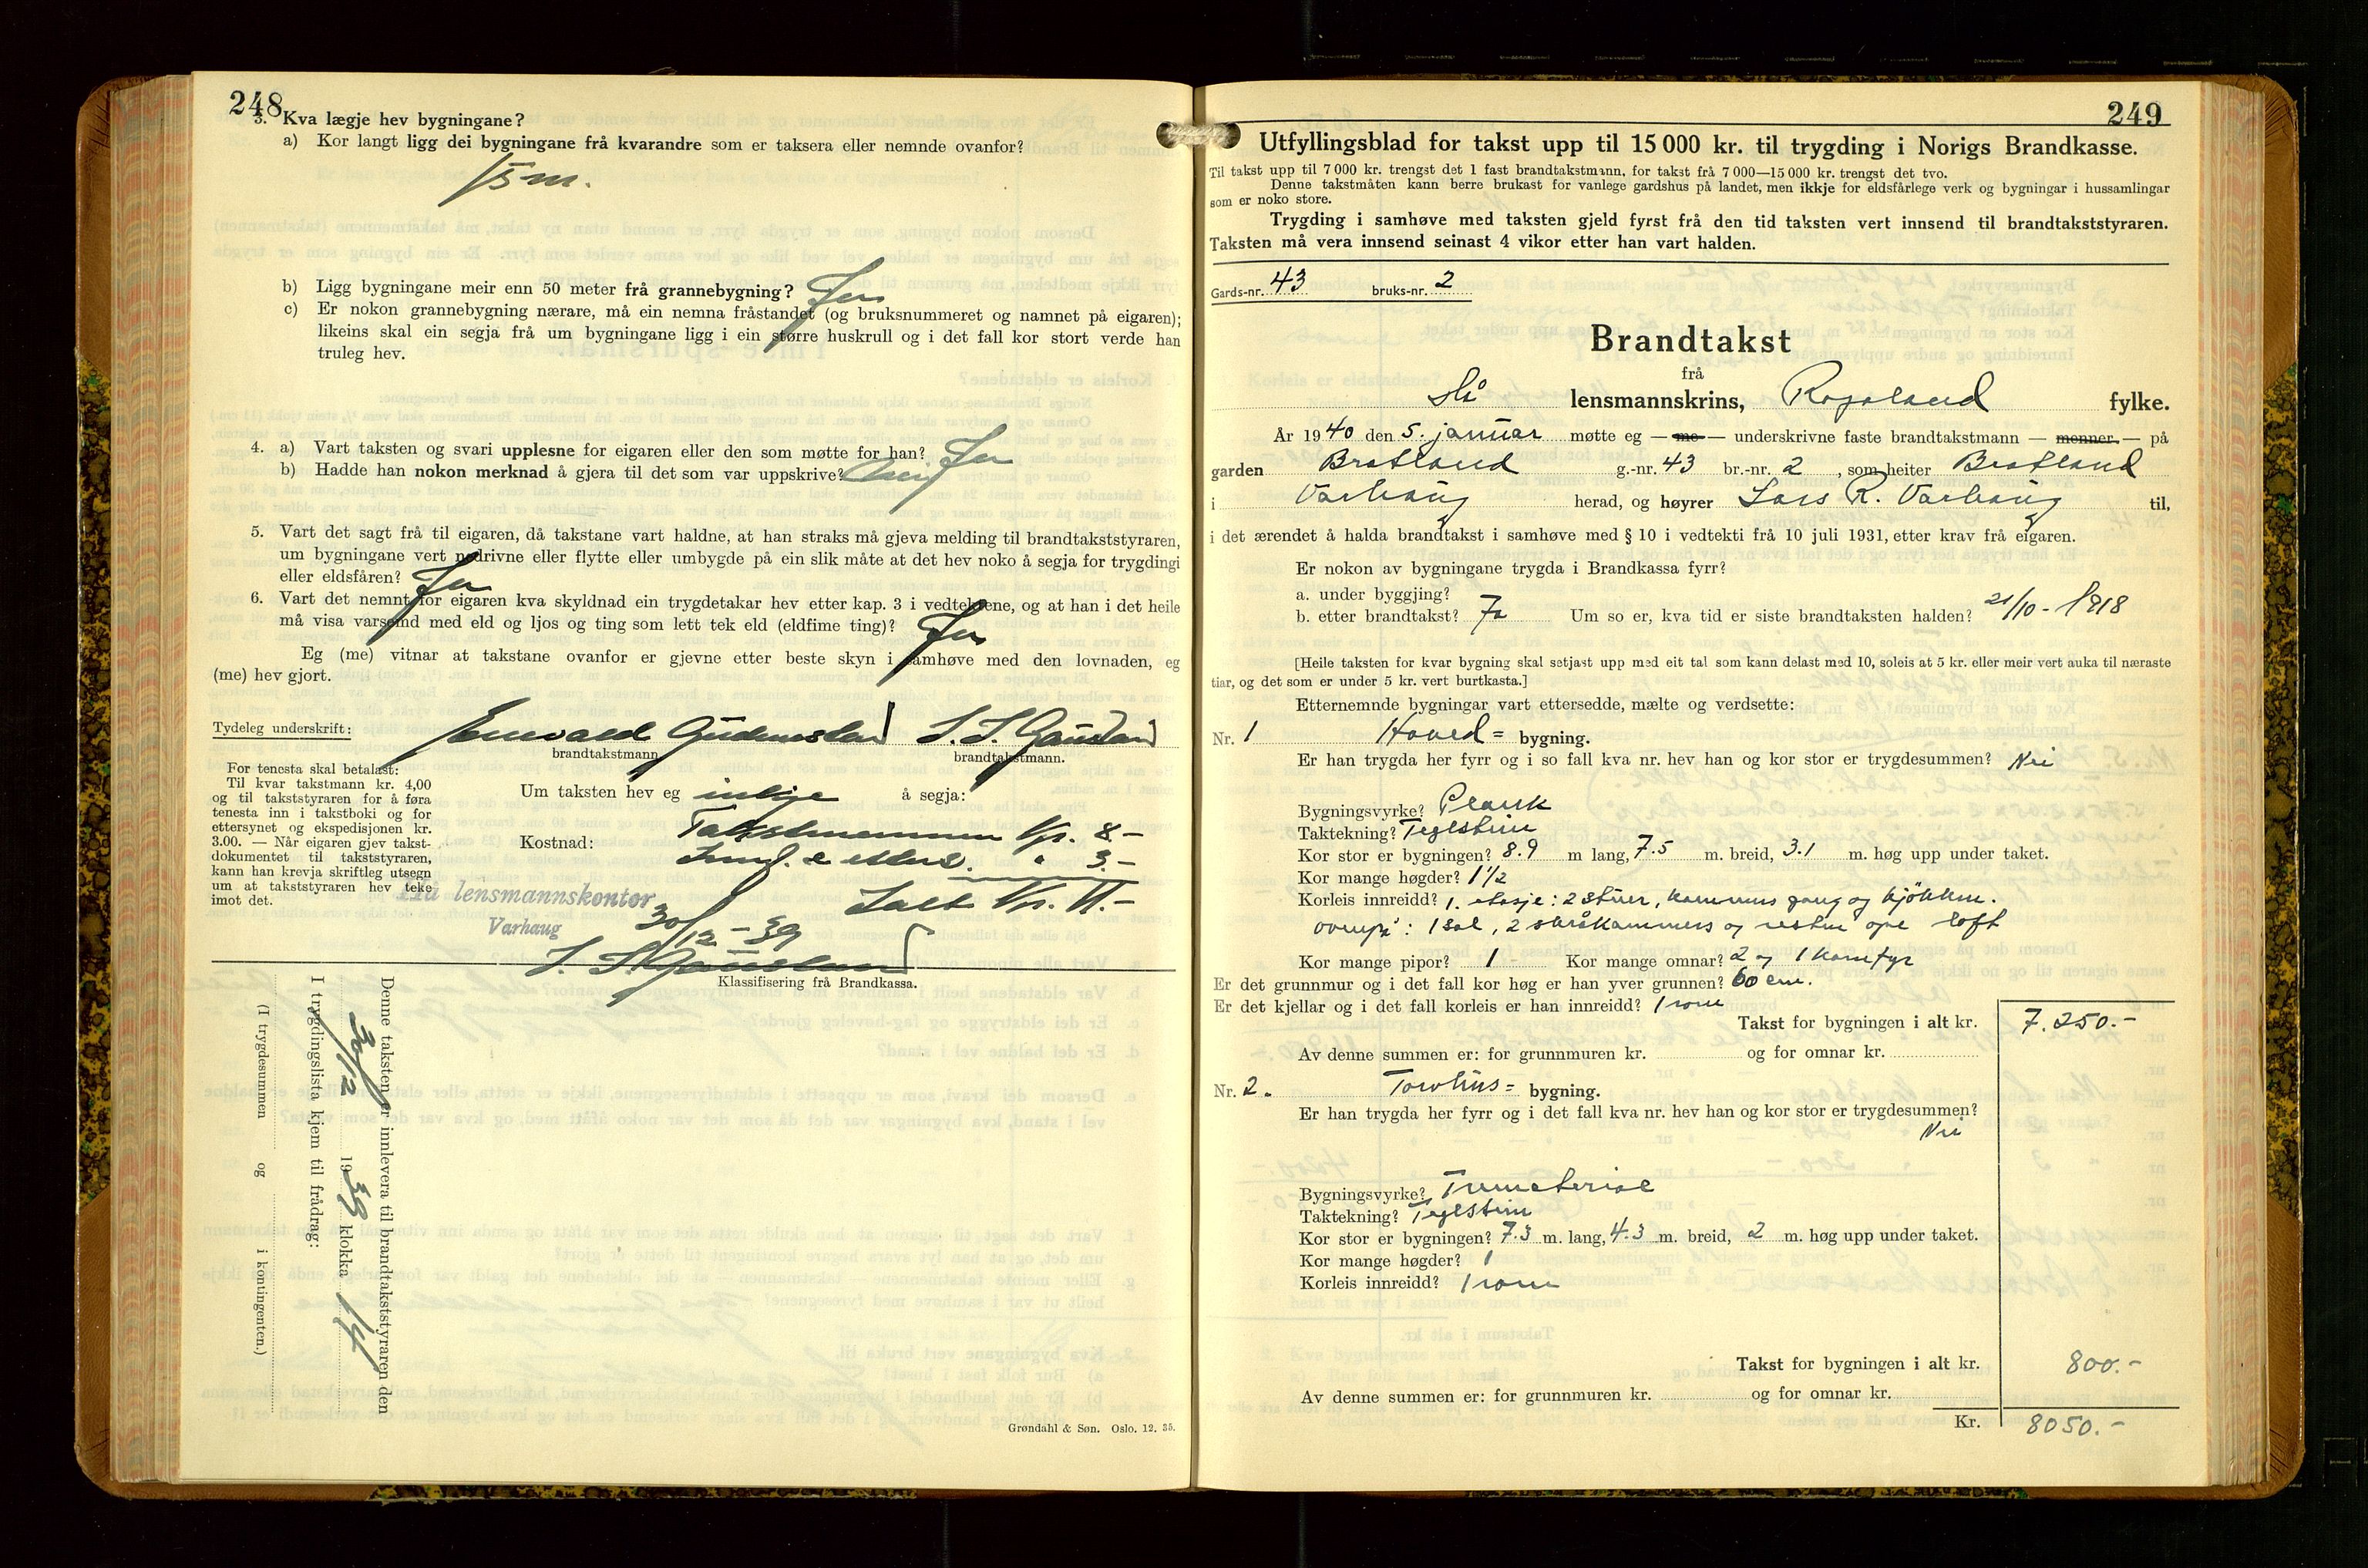 248
3. Kva lægje hev bygningane?
a) Kor langt ligg dei bygningane frå kvarandre som er taksera eller nemnde ovanfor?
15 m.
b) Ligg bygningane meir enn 50 meter frå grannebygning? Ja
c) Er nokon grannebygning nærare, må ein nemna fråstandet (og bruksnummeret og namnet på eigaren);
likeins skal ein segja frå um bygningane ligg i ein større huskrull og i det fall kor stort verde han
truleg hev.
4. a) Vart taksten og svari upplesne for eigaren eller den som møtte for han? Ja
b) Hadde han nokon merknad å gjera til det som var uppskrive? Nei
5. Vart det sagt frå til eigaren, då takstane vart haldne, at han straks må gjeva melding til brandtakststyraren,
um bygningane vert nedrivne eller flytte eller umbygde på ein slik måte at det hev noko å segja for trygdingi
eller eldsfåren? Ja
6. Vart det nemnt for eigaren kva skyldnad ein trygdetakar hev etter kap. 3 i vedtektene, og at han i det heile
må visa varsemd med eld og ljos og ting som lett tek eld (eldfime ting)? Ja
Eg (me) vitnar at takstane ovanfor er gjevne etter beste skyn i samhøve med den lovnaden, eg
(me) hev gjort.
Tydeleg underskrift:
brandtakstmann
brandtakstmann.
For tenesta skal betalast:
Til kvar takstmann kr. 4,00
og til takststyraren for å føra
tenesta inn i takstboki og for
ettersynet og ekspedisjonen kr.
3.00. — Når eigaren gjev takst-
dokumentet til takststyraren,
kann han krevja skriftleg utsegn
um at takststyraren hev teke
imot det.
Um taksten hev eg inkje å segja:
Kostnad: Takstmennene Kr. 8.-
" 3.-
Ialt Kr. 11.-
Hå lensmannskontor
Varhaug
30/12-39
Klassifisering frå Brandkassa.
Denne taksten er innlevera til brandtakststyraren den
30/12 1939 klokka 14
I trygdingslista kjem til frådrag:
(I trygdesummen og i kontingenten.)
Grøndahl & Søn. Oslo. 12. 35.
249
Utfyllingsblad for takst upp til 15 000 kr. til trygding i Norigs Brandkasse.
Til takst upp til 7 000 kr. trengst det 1 fast brandtakstmann, for takst frå 7 000—15 000 kr. trengst det tvo.
Denne takstmåten kann berre brukast for vanlege gardshus på landet, men ikkje for eldsfårlege verk og bygningar i hussamlingar
som er noko store.
Trygding i samhøve med taksten gjeld fyrst frå den tid taksten vert innsend til brandtakststyraren.
Taksten må vera innsend seinast 4 vikor etter han vart halden.
Gards-nr. 43 bruks-nr. 2
Brandtakst
frå
Hå lensmannskrins, Rogaland fylke.
År 1940 den 5. januar møtte eg — me — underskrivne faste brandtakstmann — menner — på
garden Bratland g.-nr. 43 br.-nr. 2, som heiter Bratland
i Varhaug herad, og høyrer Lars R. Varhaug til,
i det ærendet å halda brandtakst i samhøve med § 10 i vedtekti frå 10 juli 1931, etter krav frå eigaren.
Er nokon av bygningane trygda i Brandkassa fyrr?
a. under byggjing?
b. etter brandtakst? Ja Um so er, kva tid er siste brandtaksten halden? 21/10-1918
[Heile taksten for kvar bygning skal setjast upp med eit tal som kann delast med 10, soleis at 5 kr. eller meir vert auka til næraste
tiar, og det som er under 5 kr. vert burtkasta.]
Etternemnde bygningar vart ettersedde, mælte og verdsette:
Nr. 1 Hoved= bygning.
Er han trygda her fyrr og i so fall kva nr. hev han og kor stor er trygdesummen? Nei
Bygningsvyrke? Plank
Taktekning? Teglstein
Kor stor er bygningen? 8.9 m lang, 7.5 m. breid, 3.1 m. høg upp under taket.
Kor mange høgder? 1 1/2
Korleis innreidd? 1. etasje: 2 stuer, kammers gang og kjökken.
ovenpå: 1 sal, 2 skråkammers og resten ope loft
Kor mange pipor? 1 Kor mange omnar? 2 og 1 komfyr
Er det grunnmur og i det fall kor høg er han yver grunnen? 60 cm.
Er det kjellar og i det fall korleis er han innreidd? 1 rom
Takst for bygningen i alt kr. 7.250.-
Av denne summen er: for grunnmuren kr. og for omnar kr.
Nr. 2. Torvhus= bygning.
Er han trygda her fyrr og i det fall kva nr. hev han og kor stor er trygdesummen?
Nei
Bygningsvyrke? Trematerial
Taktekning? Teglstein
Kor stor er bygningen? 7.3 m. lang, 4.3 m. breid, 2 m. høg upp under taket.
Kor mange høgder? 1
Korleis innreidd? 1 rom
Takst for bygningen i alt kr. 800.-
Av denne summen er: for grunnmuren kr. og for omnar kr.
Kr. 8050.-